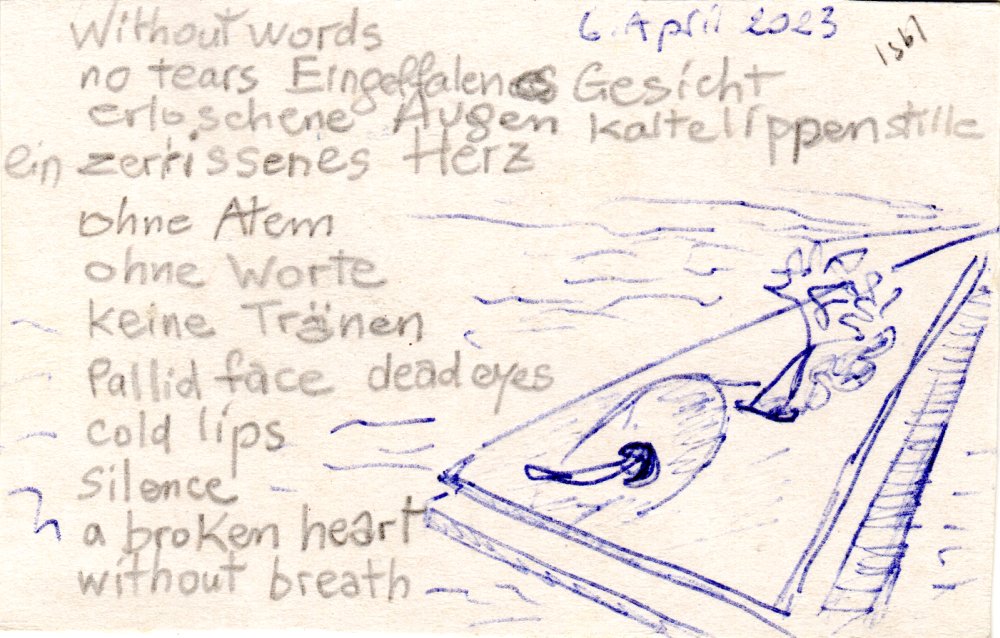 Without words 6. April 2023
no tears Eingeffalenes Gesicht
erloschene Augen kaltelippenstille
ein zerrissenes Herz
ohne Atem
ohne Worte
keine Tränen
Pallid face dead eyes
cold lips
Silence
a broken heart
without breath